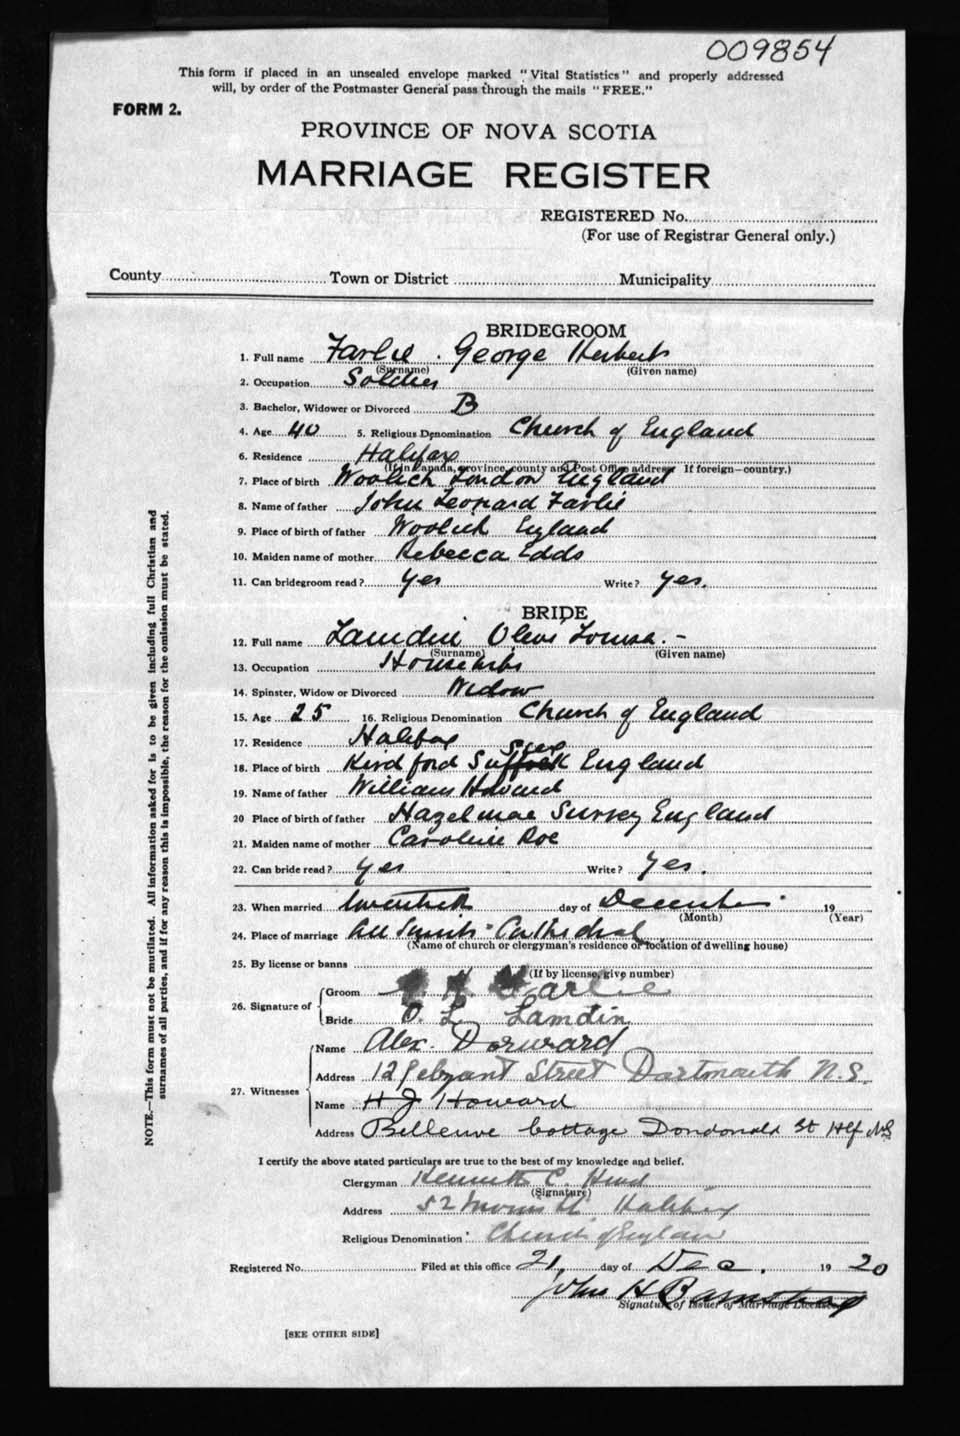 009854
This form if placed in an unsealed envelope marked "Vital Statistics" and properly addressed
will, by order of the Postmaster General pass through the mails "FREE."
FORM 2.
PROVINCE OF NOVA SCOTIA
MARRIAGE REGISTER
REGISTERED No.
(For use of Registrar General only.)
County Town or District Municipality
BRIDEGROOM
1. Full name Farlie. George Herbert
(Surname) (Given name)
2. Occupation Soldier
3. Bachelor, Widower or Divorced B
4. Age 40 5. Religious Denomination Church of England
6. Residence Halifax
(If in Canada, province, county and Post Office address If foreign—country.)
7. Place of birth Woolich London England
8. Name of father John Leonard Farlie
9. Place of birth of father Woolich England
10. Maiden name of mother Rebecca Edds
11. Can bridegroom read? Yes Write? Yes.
BRIDE
12. Full name Lamdin Louisa. -
(Surname) (Given name)
13. Occupation
14. Spinster, Widow or Divorced Widow
15. Age 25 16. Religious Denomination Church of England
17. Residence Halifax
18. Place of birth Kirdford England
19. Name of father William Howard
20 Place of birth of father Hazelmae Surrey England
21. Maiden name of mother Caroline Roe
22. Can bride read? Yes Write? Yes.
23. When married twentieth day of December 19
(Month) (Year)
24. Place of marriage All Saints Cathedral
(Name of church or clergyman's residence or location of dwelling house)
25. By license or banns
(If by license, give number)
26. Signature of Groom G. H. Farlie
Bride O. L. Lamdin
27. Witnesses Name Alex. Dorward
Address 12 Street Dartmouth N.S.
Name H J Howard
Address Bellevue Cottage Dondonald St Hfx NS
I certify the above stated particulars are true to the best of my knowledge and belief.
Clergyman Kenneth C. Hind
(Signature)
Address 52 Morris St Halifax
Religious Denomination Church of England
Registered No. Filed at this office 21, day of Dec. 19 20
John H Barnstead
Signature of Issuer of Marriage Licenses
[SEE OTHER SIDE]
NOTE.—This form must not be mutilated. All information asked for is to be given including full Christian and
surnames of all parties, and if for any reason this is impossible, the reason for the omission must be stated.